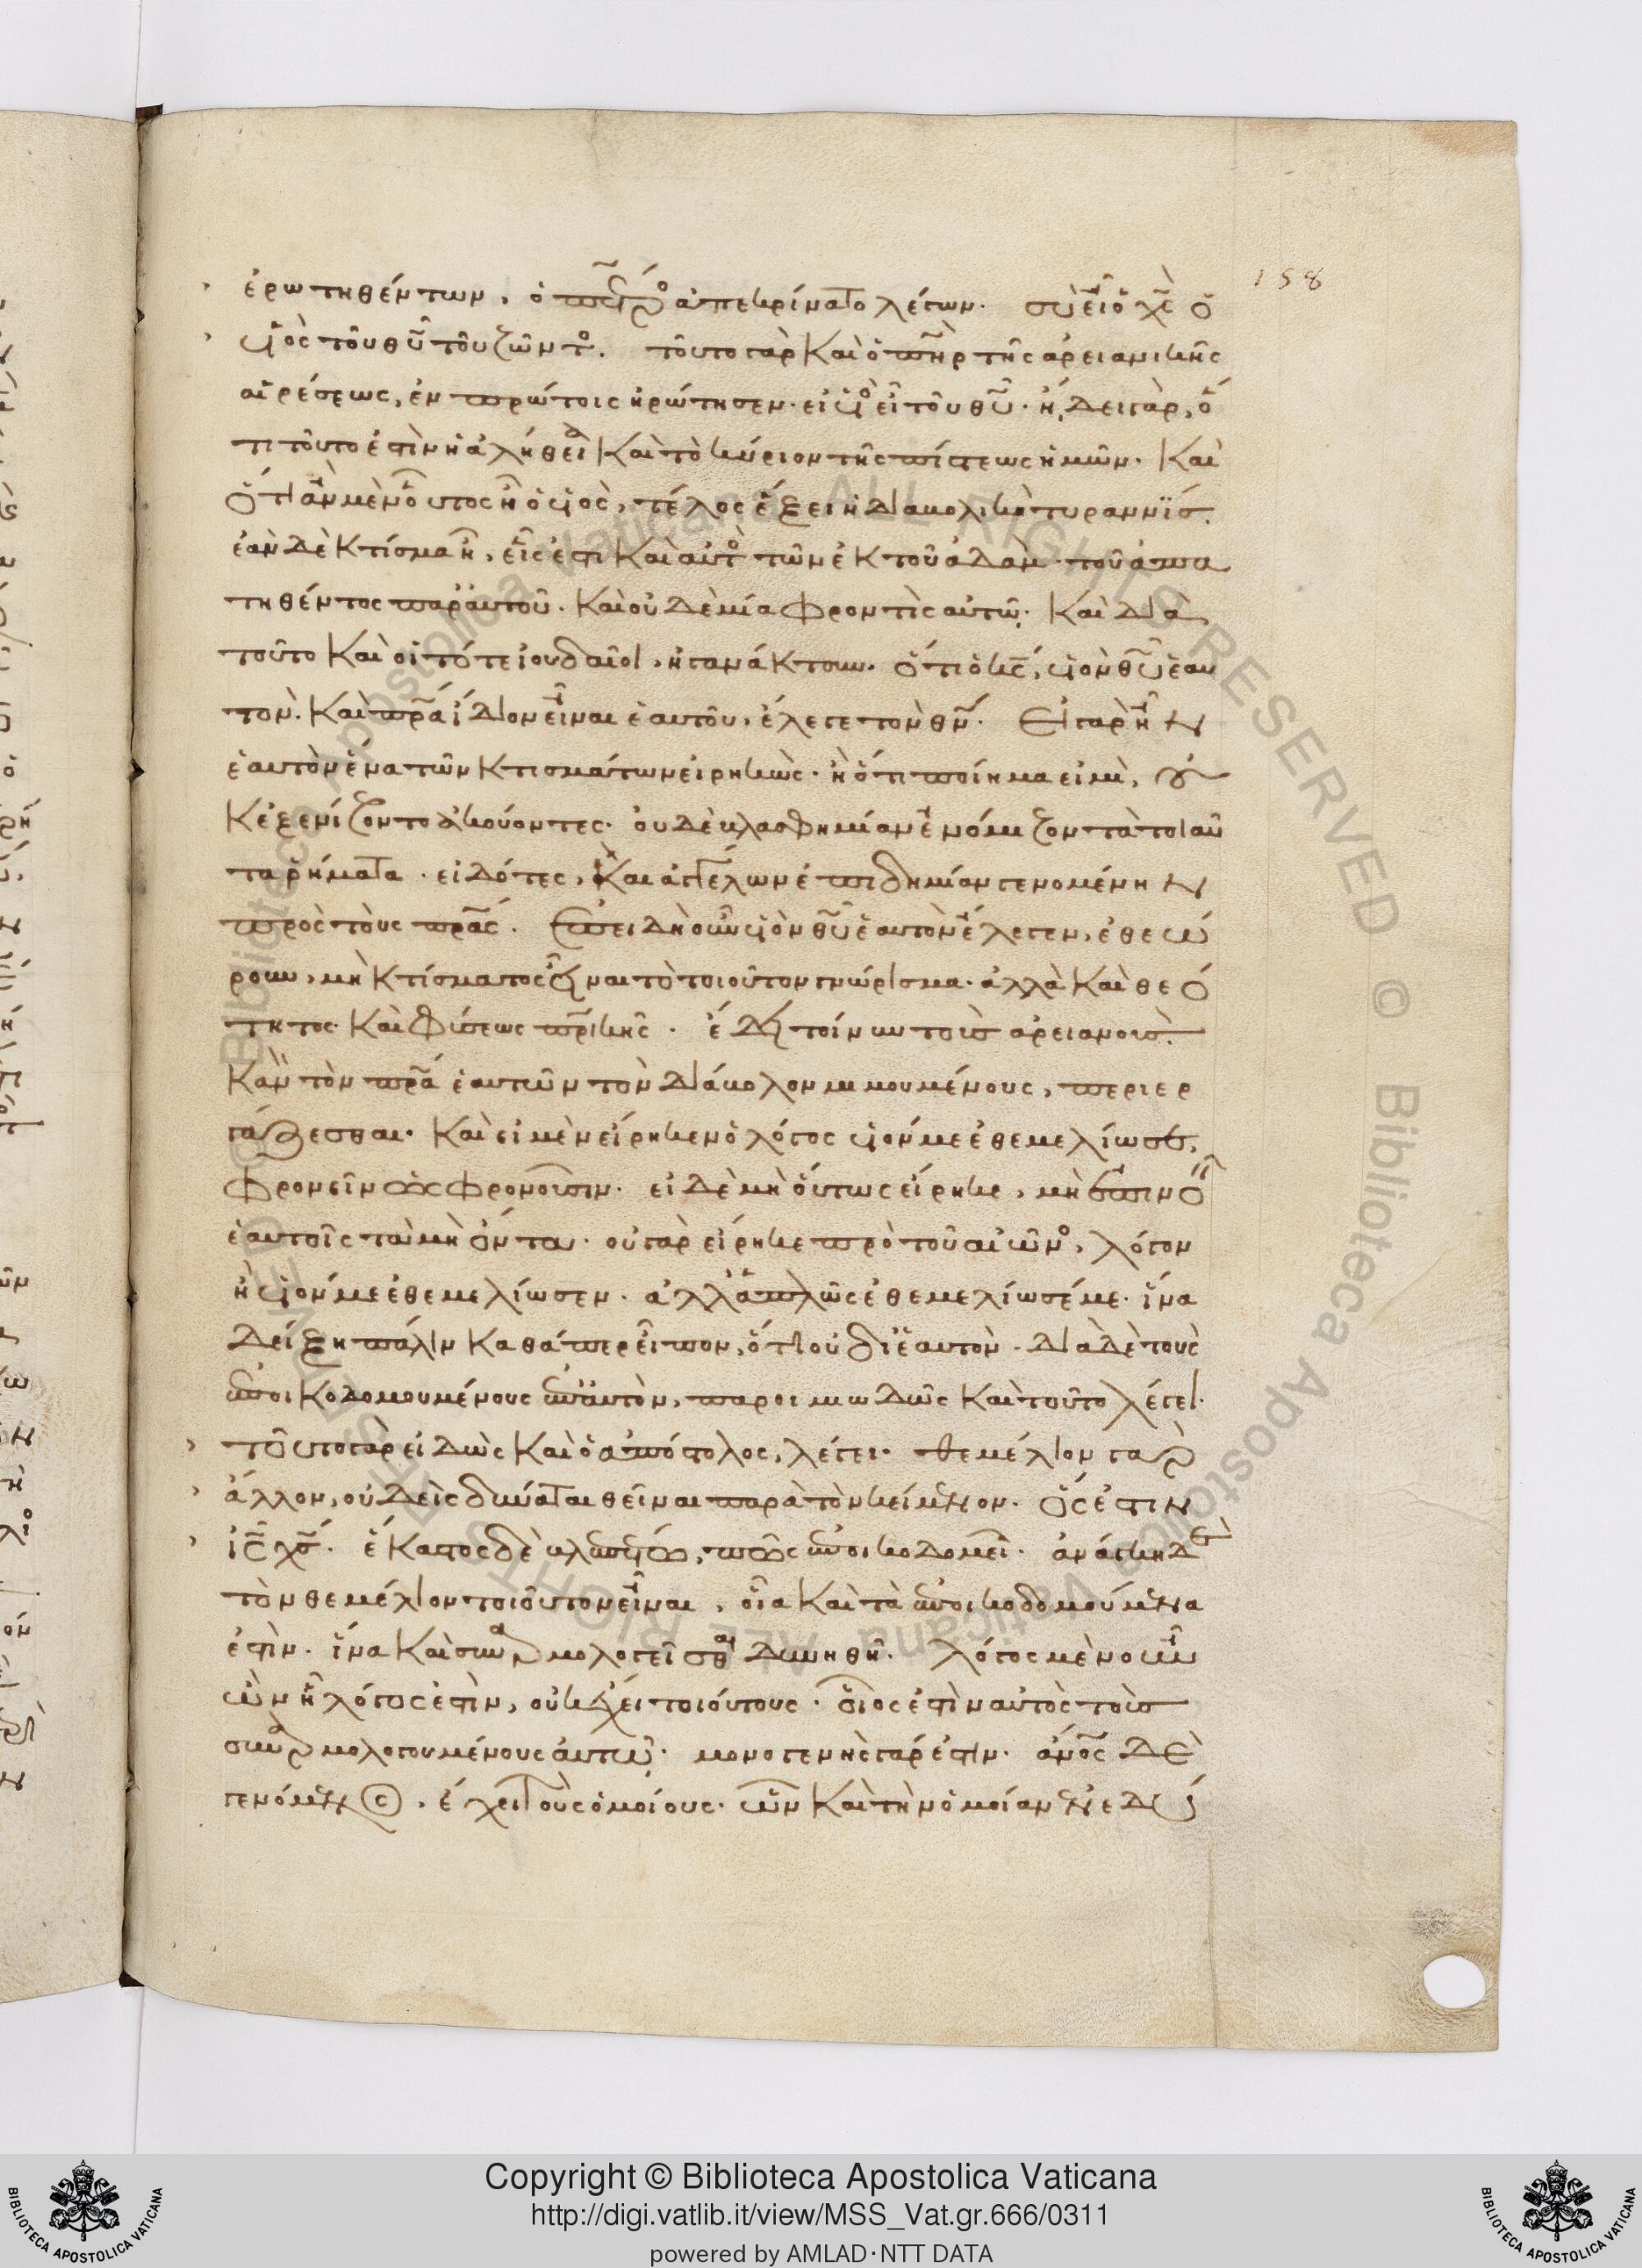 158
ἐρωτηθέντων, ὁ πέτρος ἀπεκρίνατο λέγων· σὺ εἶ ὁ χς ὁ
υἱὸς τοῦ θυ τοῦ ζῶντος. τοῦτο γὰρ καὶ ὁ πηρ τῆς ἀρειανικῆς
αἱρέσεως, ἐν πρώτοις ἠρώτησεν· εἰ υἱὸς εἶ τοῦ θυ· ᾔδει γὰρ, ὅ
τι τοῦτό ἐστιν ἡ ἀλήθεια καὶ τὸ κύριον τῆς πίστεως ἡμῶν· καὶ
ὅτι ἂν μὲν οὗτος ἦ ὁ υἱὸς, τέλος ἕξει ἡ διαβολικὴ τυραννίς.
ἐὰν δὲ κτίσμα ἦ, εἷς ἐστι καὶ αὐτὸς τῶν ἐκ τοῦ ἀδὰμ τοῦ ἀπα
τηθέντος παρ' αὐτοῦ· καὶ οὐδεμία φροντὶς αὐτῷ· καὶ διὰ
τοῦτο καὶ οἱ τότε ἰουδαῖοι, ἠγανάκτουν· ὅτι ὁ κς, υἱὸν θυ ἑαυ
τὸν· καὶ πρα ἴδιον εἶναι ἑαυτοῦ, ἔλεγε τὸν θν. Εἰ γὰρ ἦν
ἑαυτὸν ἕνα τῶν κτισμάτων εἰρηκὼς· ἢ ὅτι ποίημα εἰμὶ, οὐ
κ ἐξενίζοντο ἀκούοντες· οὐδὲ βλασφημίαν ἐνόμιζον τὰ τοιαῦ
τα ῥήματα· εἰδότες, καὶ ἀγγέλων ἐπιδημίαν γενομένην
πρὸς τοὺς πρας. Ἐπειδὴ οὖν υἱὸν θυ ἑαυτὸν ἔλεγεν, ἐθεώ
ρουν, μὴ κτίσματος εἶναι τὸ τοιοῦτον γνώρισμα· ἀλλὰ καὶ θεό
τητος καὶ φύσεως πρικῆς. ἔδει τοίνυν τοὺς ἀρειανοὺς.
κἂν τὸν πρα ἑαυτῶν τὸν διάβολον μιμουμένους, περιερ
γάζεσθαι· καὶ εἰ μὲν εἴρηκεν ὁ λόγος υἱόν με ἐθεμελίωσε,
φρονεῖν ὡς φρονοῦσιν· εἰ δὲ μὴ οὕτως εἴρηκε, μὴ ἐπινο
ἑαυτοῖς τὰ μὴ ὄντα· οὐ γὰρ εἴρηκε πρὸ τοῦ αἰῶνος, λόγον
ἢ υἱόν με ἐθεμελίωσεν· ἀλλ' ἁπλῶς ἐθεμελίωσέ με· ἵνα
δείξη πάλιν καθάπερ εἶπον, ὅτι οὐ δι' ἑαυτὸν· διὰ δὲ τοὺς
ἐποικοδομουμένους ἐπ' αὐτὸν, παροιμιωδῶς καὶ τοῦτο λέγει·
τοῦτο γὰρ εἰδὼς καὶ ὁ ἀπόστολος, λέγει· θεμέλιον γὰρ
ἄλλον, οὐδεὶς δύναται θεῖναι παρὰ τὸν κείμενον· ὅς ἐστιν
ις χς· ἕκαστος δὲ βλεπέτω, πῶς ἐποικοδομεῖ· ἀνάγκη δὲ
τὸν θεμέλιον τοιοῦτον εἶναι, οἷα καὶ τὰ ἐποικοδομούμενα
ἐστὶν· ἵνα καὶ συναρμολογεῖσθαι δυνηθῆ· λόγος μὲν οὖν
ὢν ἦ λόγος ἐστὶν, οὐκ ἔχει τοιούτους· οἷος ἐστὶν αὐτὸς τοὺς
συναρμολογουμένους αὐτῷ· μονογενὴς γάρ ἐστιν· ανος δὲ
γενόμενος, ἔχει τοὺς ὁμοίους· ὧν καὶ τὴν ὁμοίαν ἐνεδύ
Copyright © Biblioteca Apostolica Vaticana
http://digi.vatlib.it/view/MSS_Vat.gr.666/0311
powered by AMLAD·NTT DATA